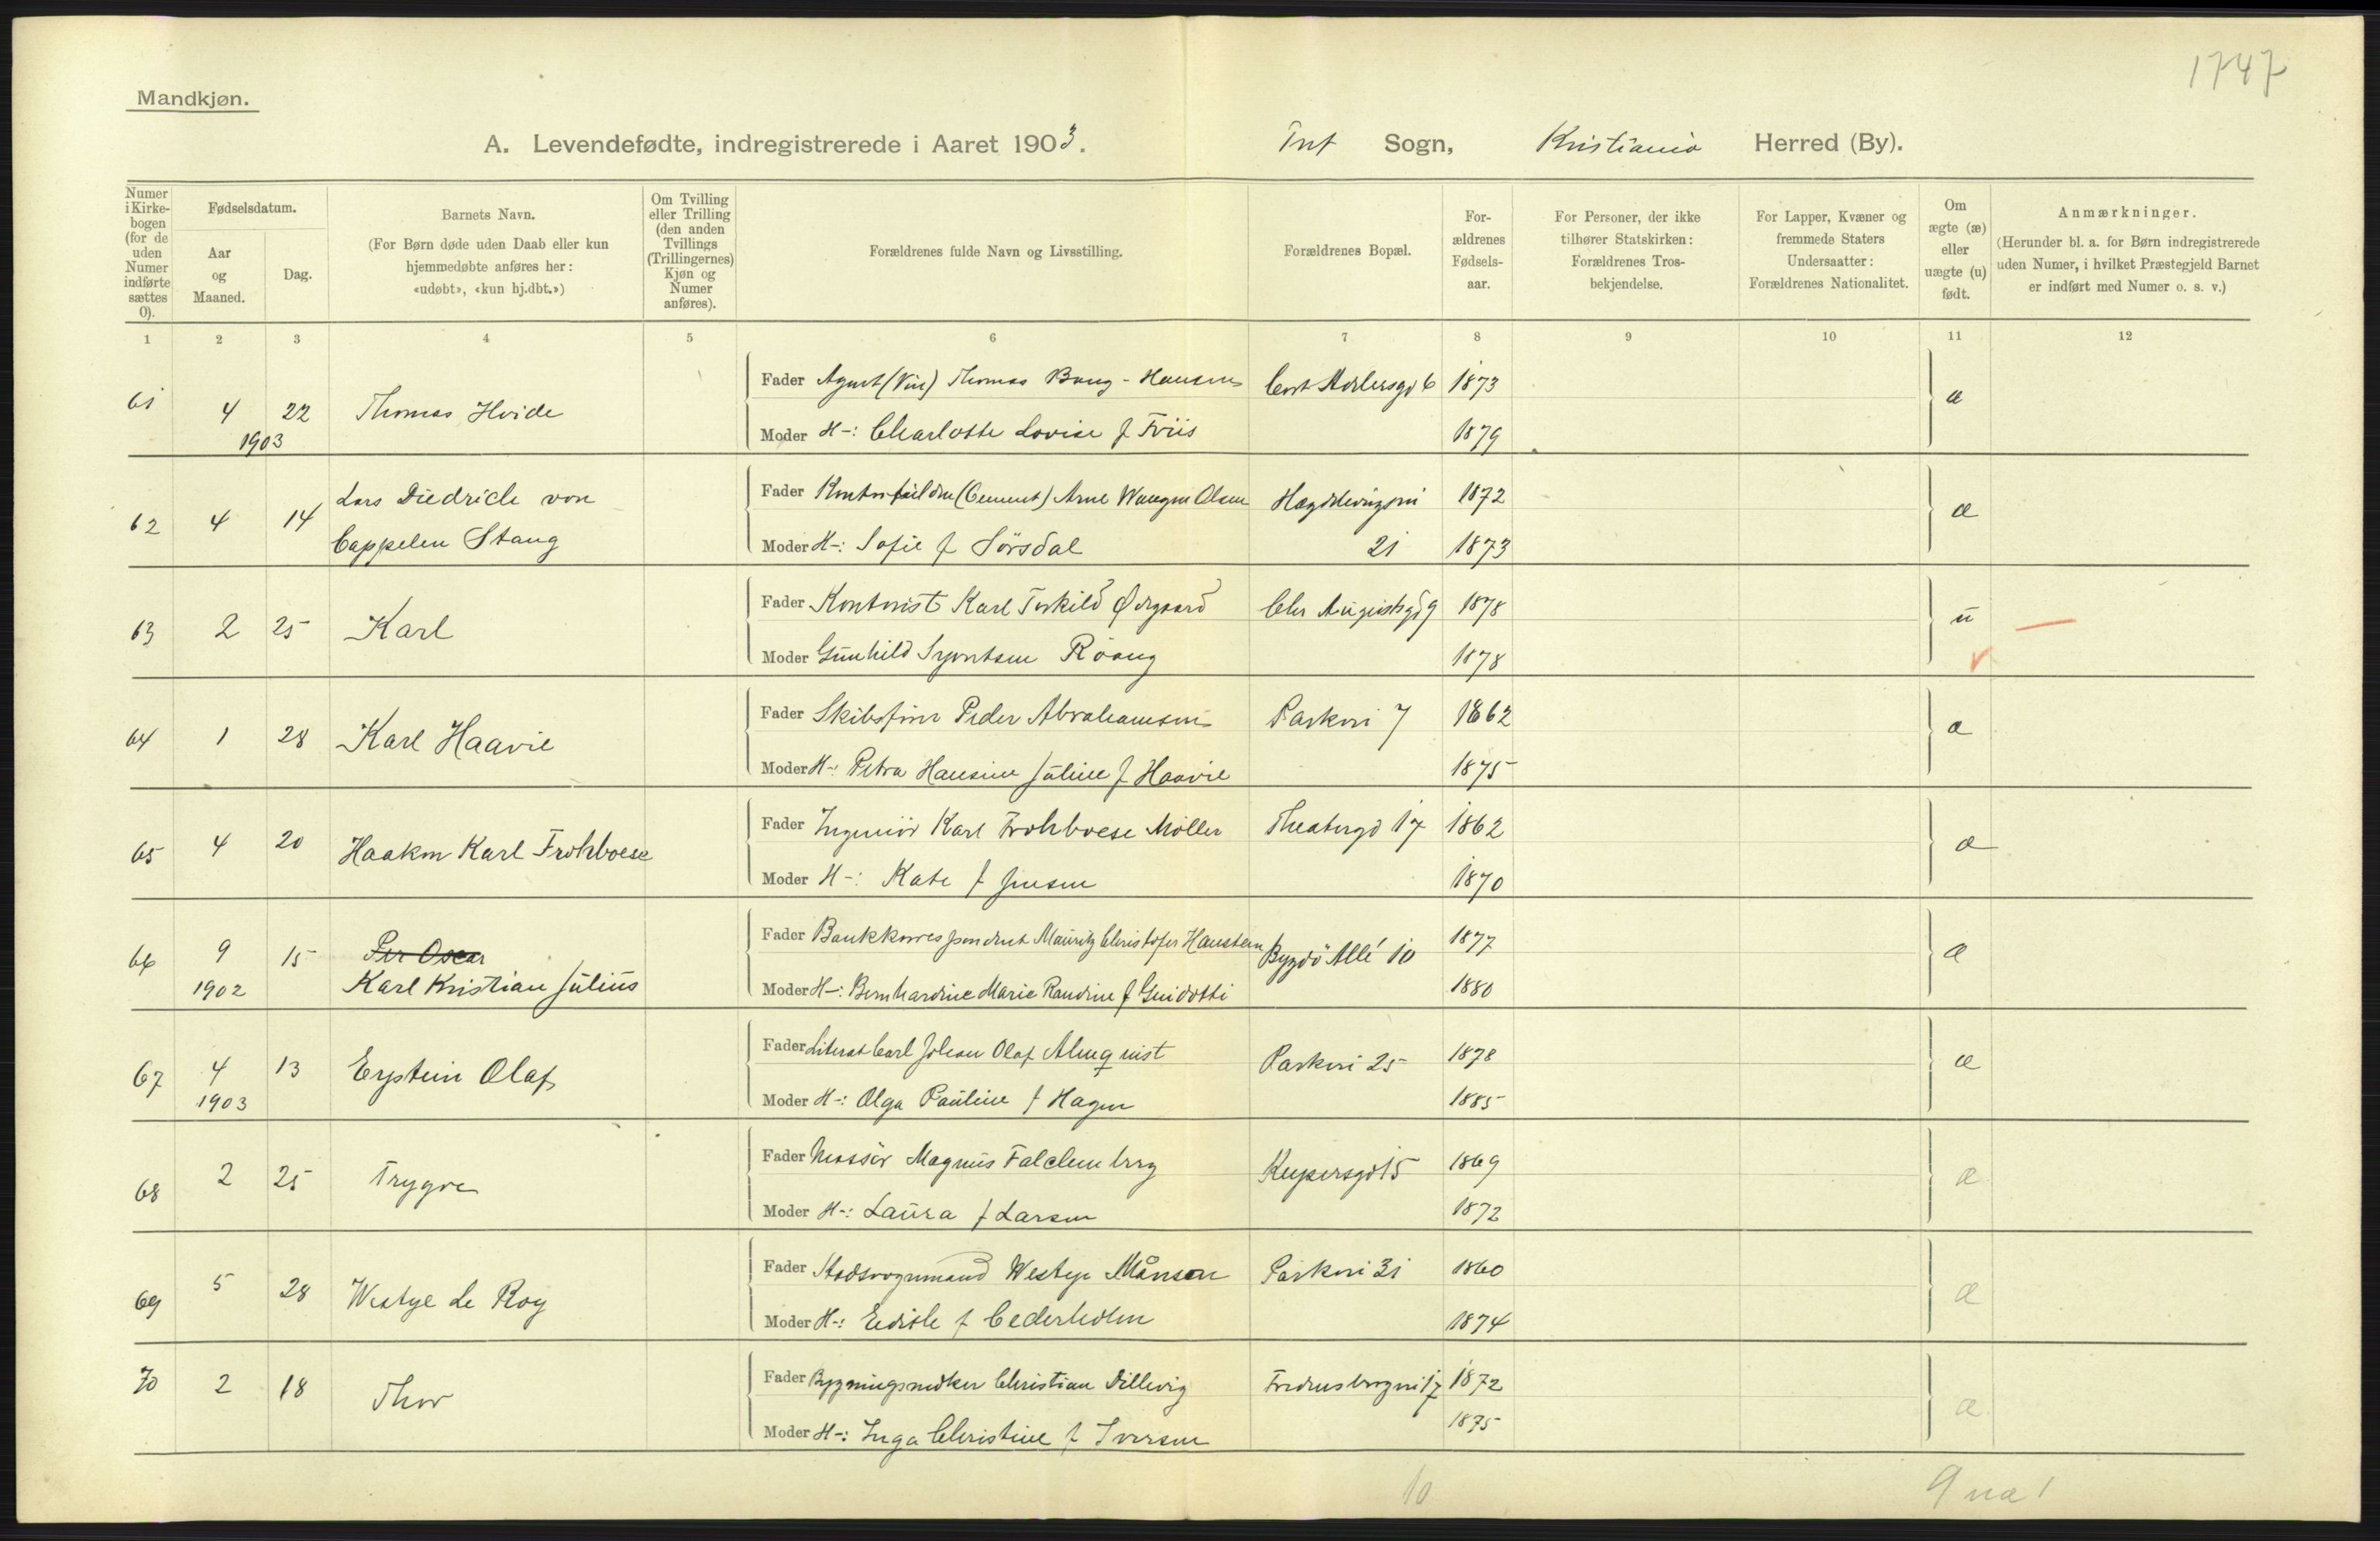 1747
Mandkjøn.
A. Levendefødte, indregistrerede i Aaret 1903. Tref Sogn, Kristiania Herred (By).
Numer i Kirke-bogen (for de uden Numer indførte sættes 0).
Fødselsdatum.
Aar og Maaned.
Dag.
Barnets Navn.
(For Børn døde uden Daab eller kun hjemmedøbte anføres her: «udøbt», «kun hj.dbt.»)
Om Tvilling eller Trilling (den anden Tvillings (Trillingernes) Kjøn og Numer anføres).
Forældrenes fulde Navn og Livsstilling.
Forældrenes Bopæl.
For-ældrenes Fødsels-aar.
For Personer, der ikke tilhører Statskirken: Forældrenes Tros-bekjendelse.
For Lapper, Kvæner og fremmede Staters Undersaatter: Forældrenes Nationalitet.
Om ægte (æ) eller uægte (u) født.
Anmærkninger.
(Herunder bl. a. for Børn indregistrerede uden Numer, i hvilket Præstegjeld Barnet er indført med Numer o. s. v.)
1 2 3 4 5 6 7 8 9 10 11 12
61 4 1903 22 Thomas Hvide
Fader Agent (Vin) Thomas Bang-Hansen Cort Adelersgd 6 1873 æ
Moder H-: Charlotte Lovise f Friis 1879
62 4 14 Lars Diedrich von Cappelen Stang
Fader (Cement) Arne Wangen Olsen 1872 æ
Moder H-: Sofie f Sørsdal 21 1873
63 2 25 Karl
Fader Kontorist Karl Torkild Ørgaard Chr Augustsgd 9 1878 u
Moder Gunhild Syvertsen Röang 1878
64 1 28 Karl Haavie
Fader Skibsfører Peder Abrahamsen Parkvei 7 1862 æ
Moder H-: Petra Hansine Juline f Haavie 1875
65 4 20 Haakon Karl Frohboese
Fader Ingeniör Karl Frohboese Möller Theatergd 17 1862 æ
Moder H-: Kate f Jensen 1870
66 9 1902 15 Per Oscar
Karl Kristian Julius
Fader Bankkorrespondent Mauritz Christofer Hansteen Bygdö Allé 10 1877 æ
Moder H-: Bernhardine Marie Randine f Guidotti 1880
67 4 1903 13 Eystein Olaf
Fader Literat Carl Johan Olaf Almqvist Parkvei 25 1878 æ
Moder H-: Olga Pauline f Hagen 1885
68 2 25 Trygve
Fader Massör Magnus Falchenberg Keysersgd 15 1869 æ
Moder H-: Laura f Larsen 1872
69 5 28 Westye Le Roy
Fader Stadsvognmand Westye Månson Parkvei 31 1860 æ
Moder H-: f Cederholm 1874
70 2 18 Thor
Fader Bygningssnedker Christian Dillevig Fredensborgvei 17 1872 æ
Moder H-: Inga Christine f Iversen 1875
10 9 u æ 1